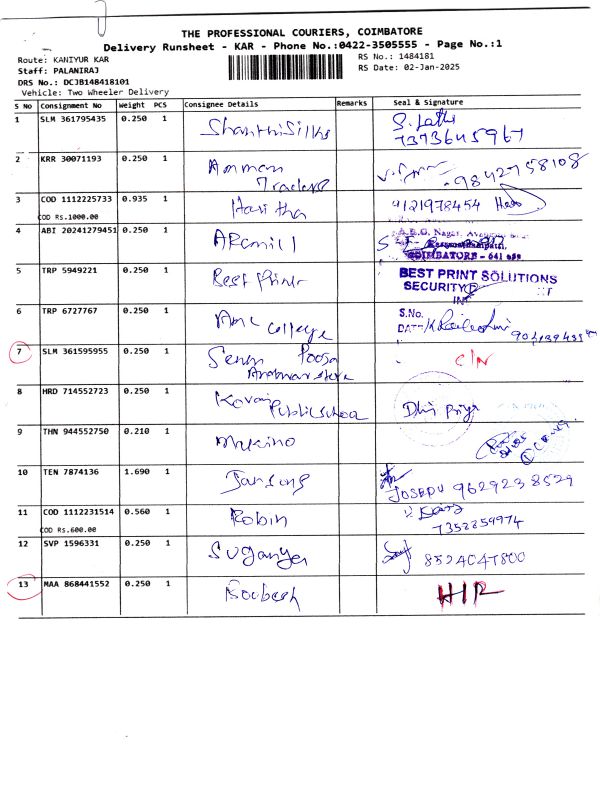 THE PROFESSIONAL COURIERS, COIMBATORE
Delivery Runsheet - KAR - Phone No.:0422-3505555 - Page No.:1
Route: KANIYUR KAR
RS No.: 1484181
Staff: PALANIRAJ
RS Date: 02-Jan-2025
DRS No.: DCJB148418101
Vehicle: Two Wheeler Delivery
S NO Consignment No Weight PCS Consignee Details Remarks Seal & Signature
1 SLM 361795435 0.250 1 Shanthi Silks
7373645967
2 KRR 30071193 0.250 1 Amman Traders 9842758108
3 COD 1112225733 0.935 1 Haritha 9121978454
COD RS.1000.00
4 ABI 20241279451 0.250 1
COIMBATORE - 641
5 TRP 5949221 0.250 1 Best Print BEST PRINT SOLUTIONS
SECURITY
6 TRP 6727767 0.250 1 College S.No.
DATE
7 SLM 361595955 0.250 1 Pooja C/N
8 HRD 714552723 0.250 1 Public School Dhivi Priya
9 THN 944552750 0.210 1 Makino
10 TEN 7874136 1.690 1 JOSEPH 9629238529
11 COD 1112231514 0.560 1 Robin
7352259974
COD RS.600.00
12 SVP 1596331 0.250 1 Suganya 8524047800
13 MAA 868441552 0.250 1